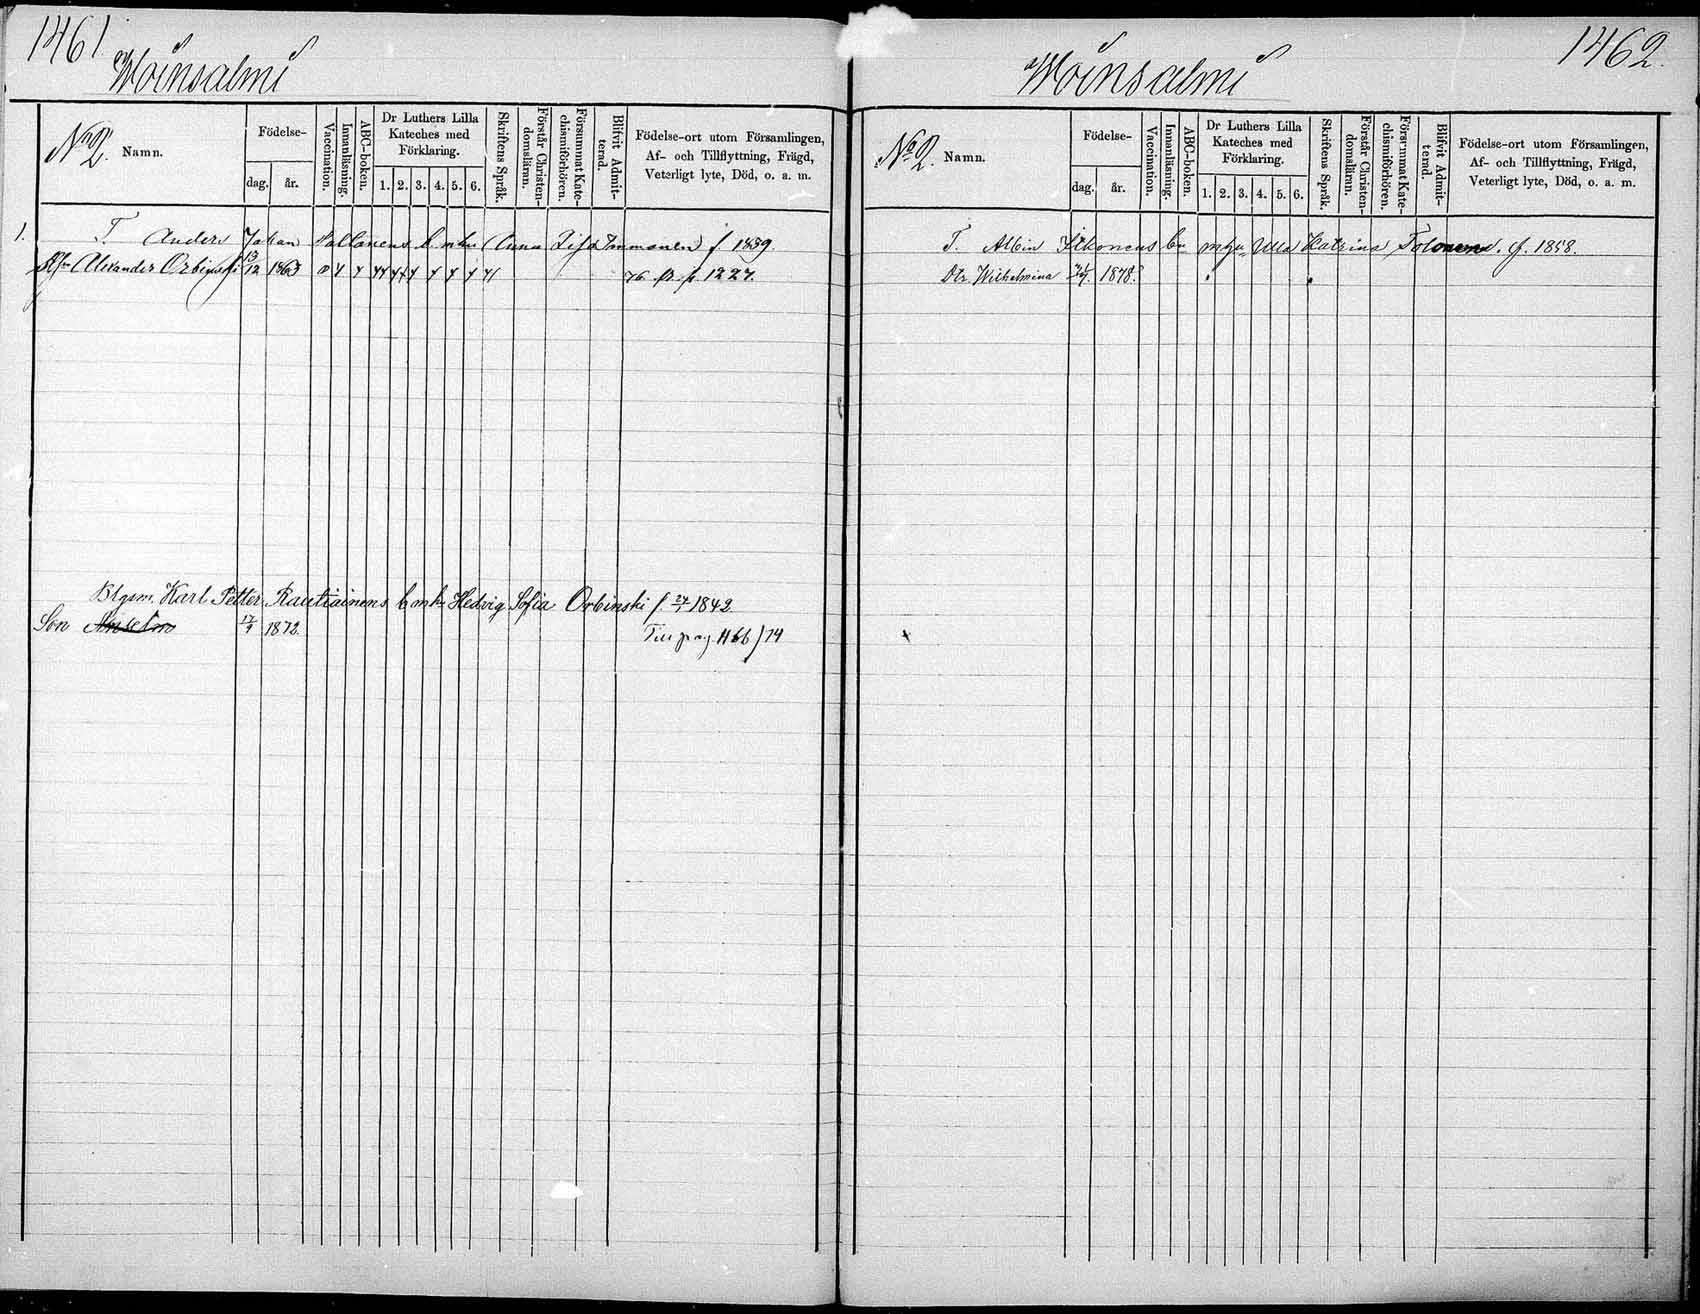 1461
Woinsalmi
No 2. Namn.
Födelse-
dag. år.
Vaccination.
Innanläsning.
ABC-boken.
Dr Luthers Lilla
Kateches med
Förklaring.
1. 2. 3. 4. 5. 6.
Skriftens Språk.
Förstår Christen-
domsläran.
Försummat Kate-
chismiförhören.
Blifvit Admit-
terad.
Födelse-ort utom Församlingen,
Af- och Tillflyttning, Frägd,
Veterligt lyte, Död, o. a. m.
1. T. Anders Johan b. m. hu Anna Lisa Immonen f 1839.
Alexander Orbinski 13/12 1863 76 fr. p. 1227.
Btgsm. Karl Petter Rautiainens b m hu Hedvig Sofia Orbinski f. 24/1 1842.
Son Anselm 17/9 1872. Till pag. 1166/74
1462.
Woinsalmi
No 2. Namn.
Födelse-
dag. år.
Vaccination.
Innanläsning.
ABC-boken.
Dr Luthers Lilla
Kateches med
Förklaring.
1. 2. 3. 4. 5. 6.
Skriftens Språk.
Förstår Christen-
domsläran.
Försummat Kate-
chismiförhören.
Blifvit Admit-
terad.
Födelse-ort utom Församlingen,
Af- och Tillflyttning, Frägd,
Veterligt lyte, Död, o. a. m.
T. Albin Ulla Katrina Tolonen f. 1858.
Dtr. Wilhelmina 1878.